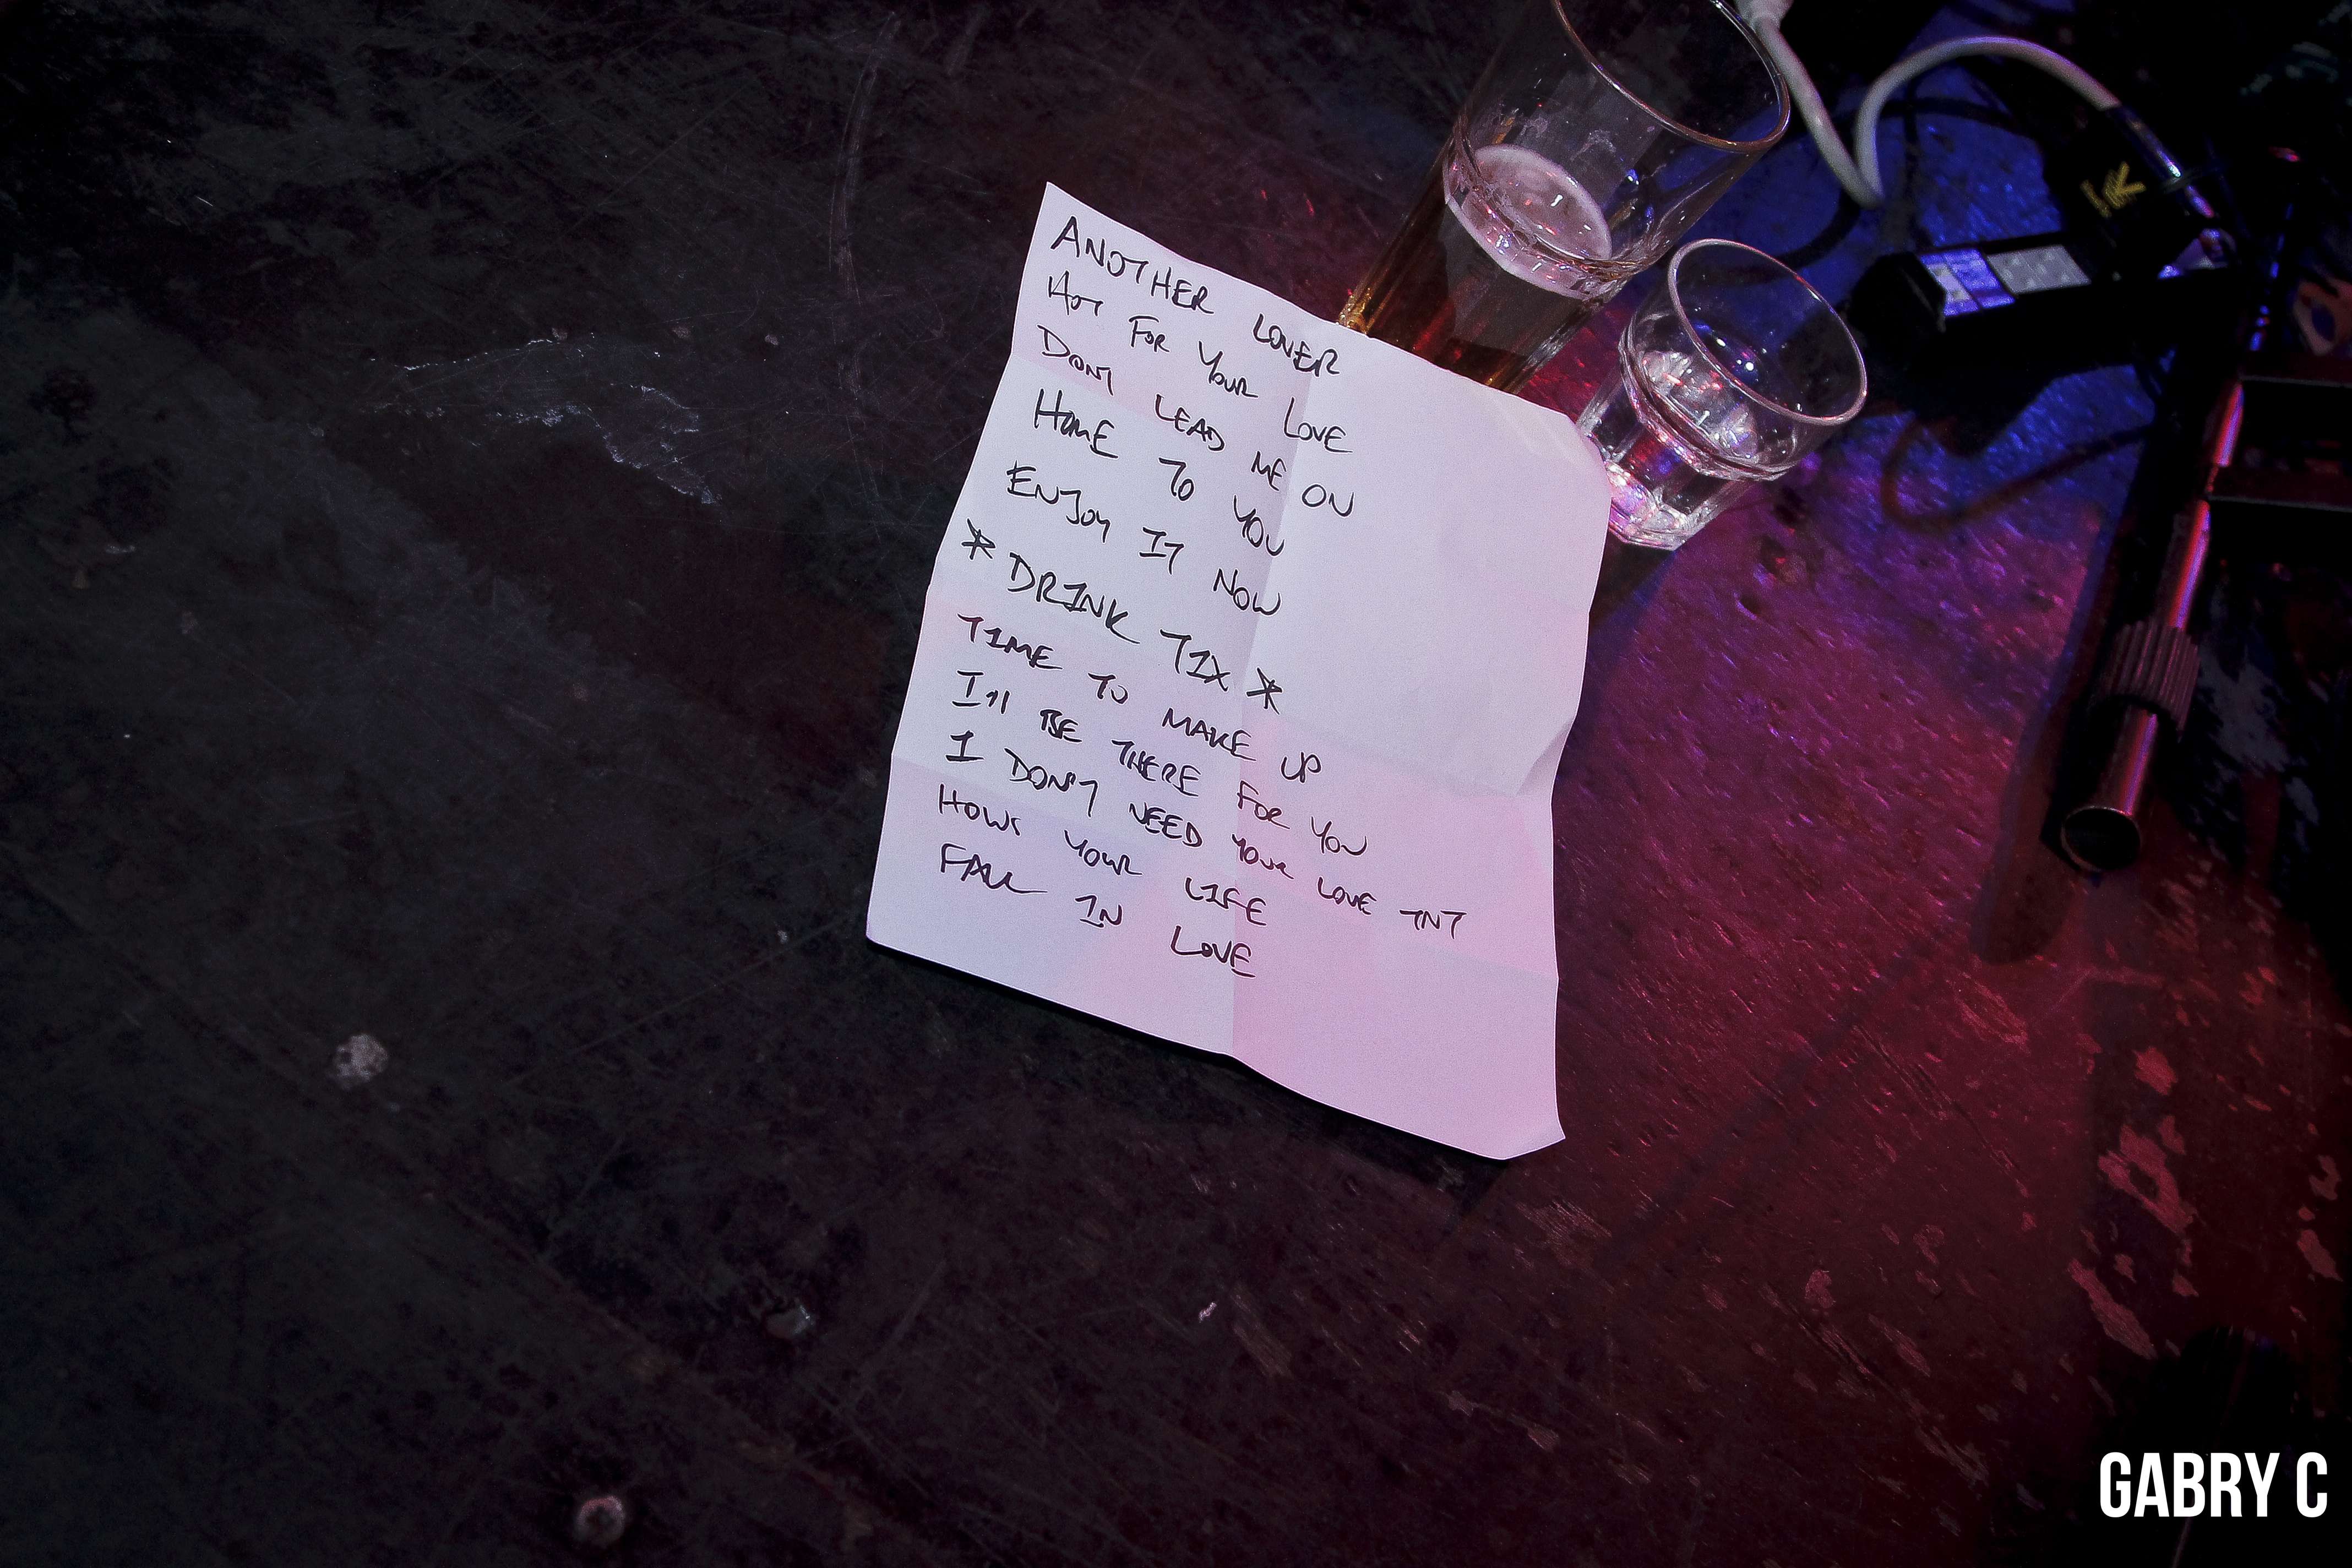 ANOTHER LOVER
HOT FOR YOUR LOVE
DONT LEAD ME ON
HOME TO YOU
ENJOY IT NOW
* DRINK TIX *
TIME TO MAKE UP
I'll BE THERE FOR YOU
I DON'T NEED YOUR LOVE TNT
HOWS YOUR LIFE
FALL IN LOVE
GABRY C